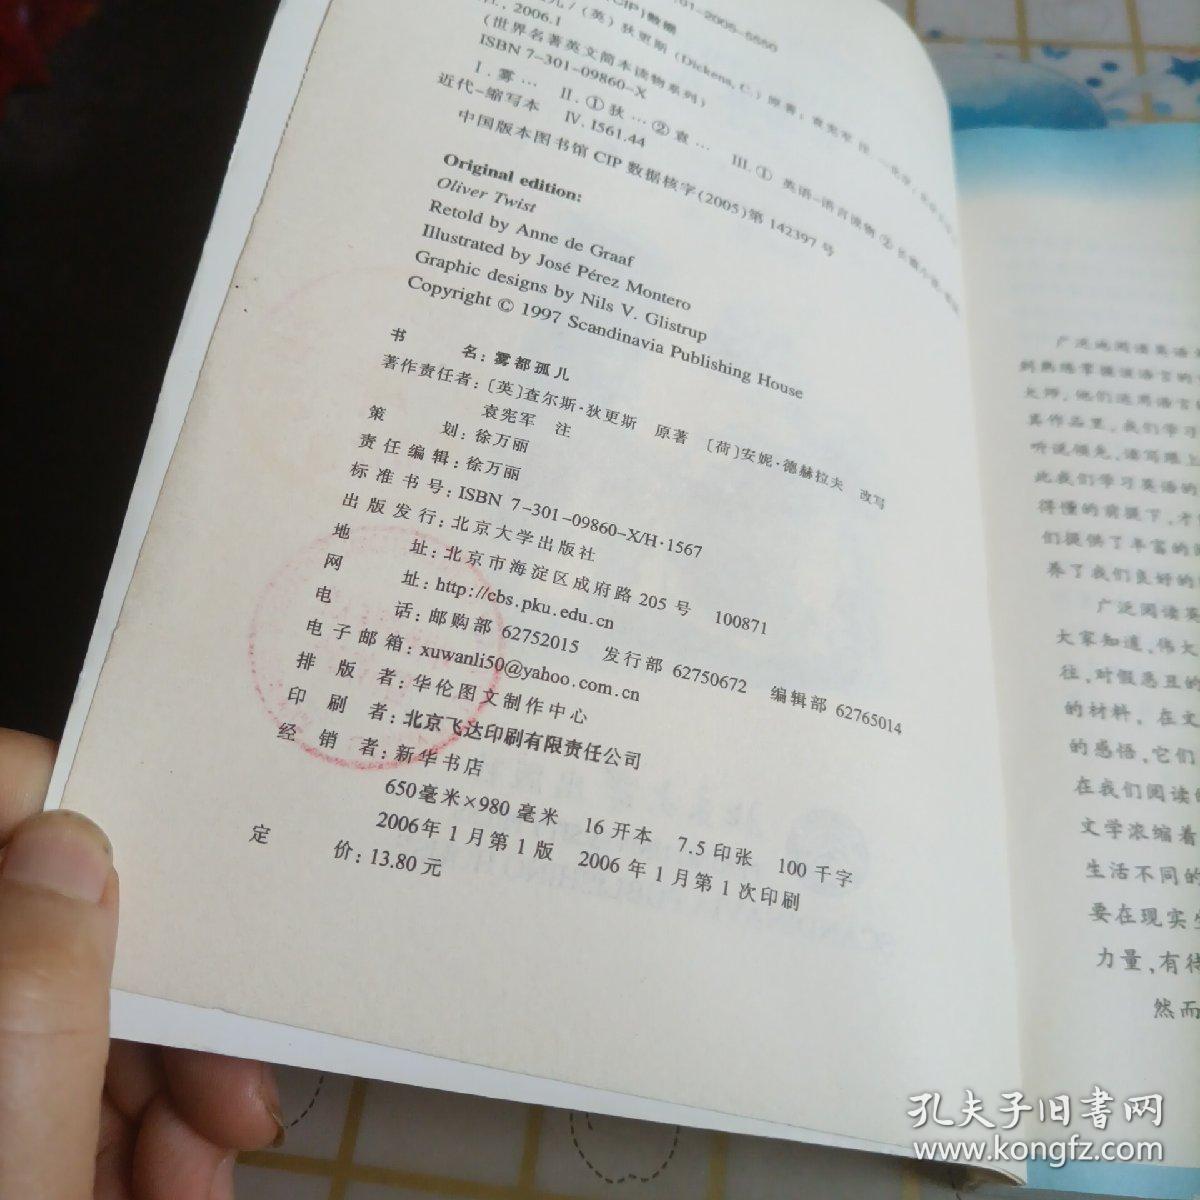 01-2005-5550
(CIP)数据
儿/(英)狄更斯(Dickens, C.)原著;袁宪军 注.
社, 2006.1
(世界名著英文简本读物系列)
ISBN 7-301-09860-X
Ⅰ.雾… Ⅱ.①狄…②袁… Ⅲ.① 英语-语言读物 ②长篇小说-英国-
近代-缩写本 Ⅳ. I561.44
中国版本图书馆 CIP 数据核字(2005)第 142397 号
Original edition:
Oliver Twist
Retold by Anne de Graaf
Illustrated by José Pérez Montero
Graphic designs by Nils V. Glistrup
Copyright © 1997 Scandinavia Publishing House
书 名:雾都孤儿
著作责任者:〔英〕查尔斯·狄更斯 原著 〔荷〕安妮·德赫拉夫 改写
袁宪军 注
策 划:徐万丽
责任编辑:徐万丽
标准书号:ISBN 7-301-09860-X/H·1567
出版发行:北京大学出版社
地 址:北京市海淀区成府路 205 号 100871
网 址:http://cbs.pku.edu.cn
电 话:邮购部 62752015 发行部 62750672 编辑部 62765014
电子邮箱:xuwanli50@yahoo.com.cn
排 版 者:华伦图文制作中心
印 刷 者:北京飞达印刷有限责任公司
经 销 者:新华书店
650毫米×980 毫米 16 开本 7.5 印张 100 千字
2006年 1 月第 1 版 2006 年 1 月第 1 次印刷
定 价:13.80 元
广泛地阅读英语
到熟练掌握该语言的
大师,他们运用语言
其作品里,我们学习
听说领先,读写跟上
此我们学习英语的
得懂的前提下,才
们提供了丰富的
养了我们良好的
广泛阅读英
大家知道,伟大
往,对假恶丑的
的材料,在文
的感悟,它们
在我们阅读的
文学浓缩着
生活不同的
要在现实生
力量,有待
然而
孔夫子旧书网
www.kongfz.com